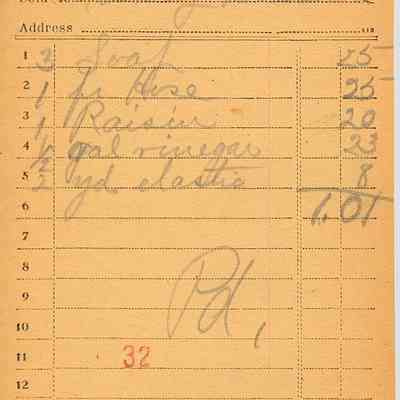 Address
1 3 Soap 25
2 1 pr Hose 25
3 1 Raisin 20
4 ½ gal vinegar 23
5 2 yd elastic 8
6 1.01
7
8
9 Pd,
10
11 32
12